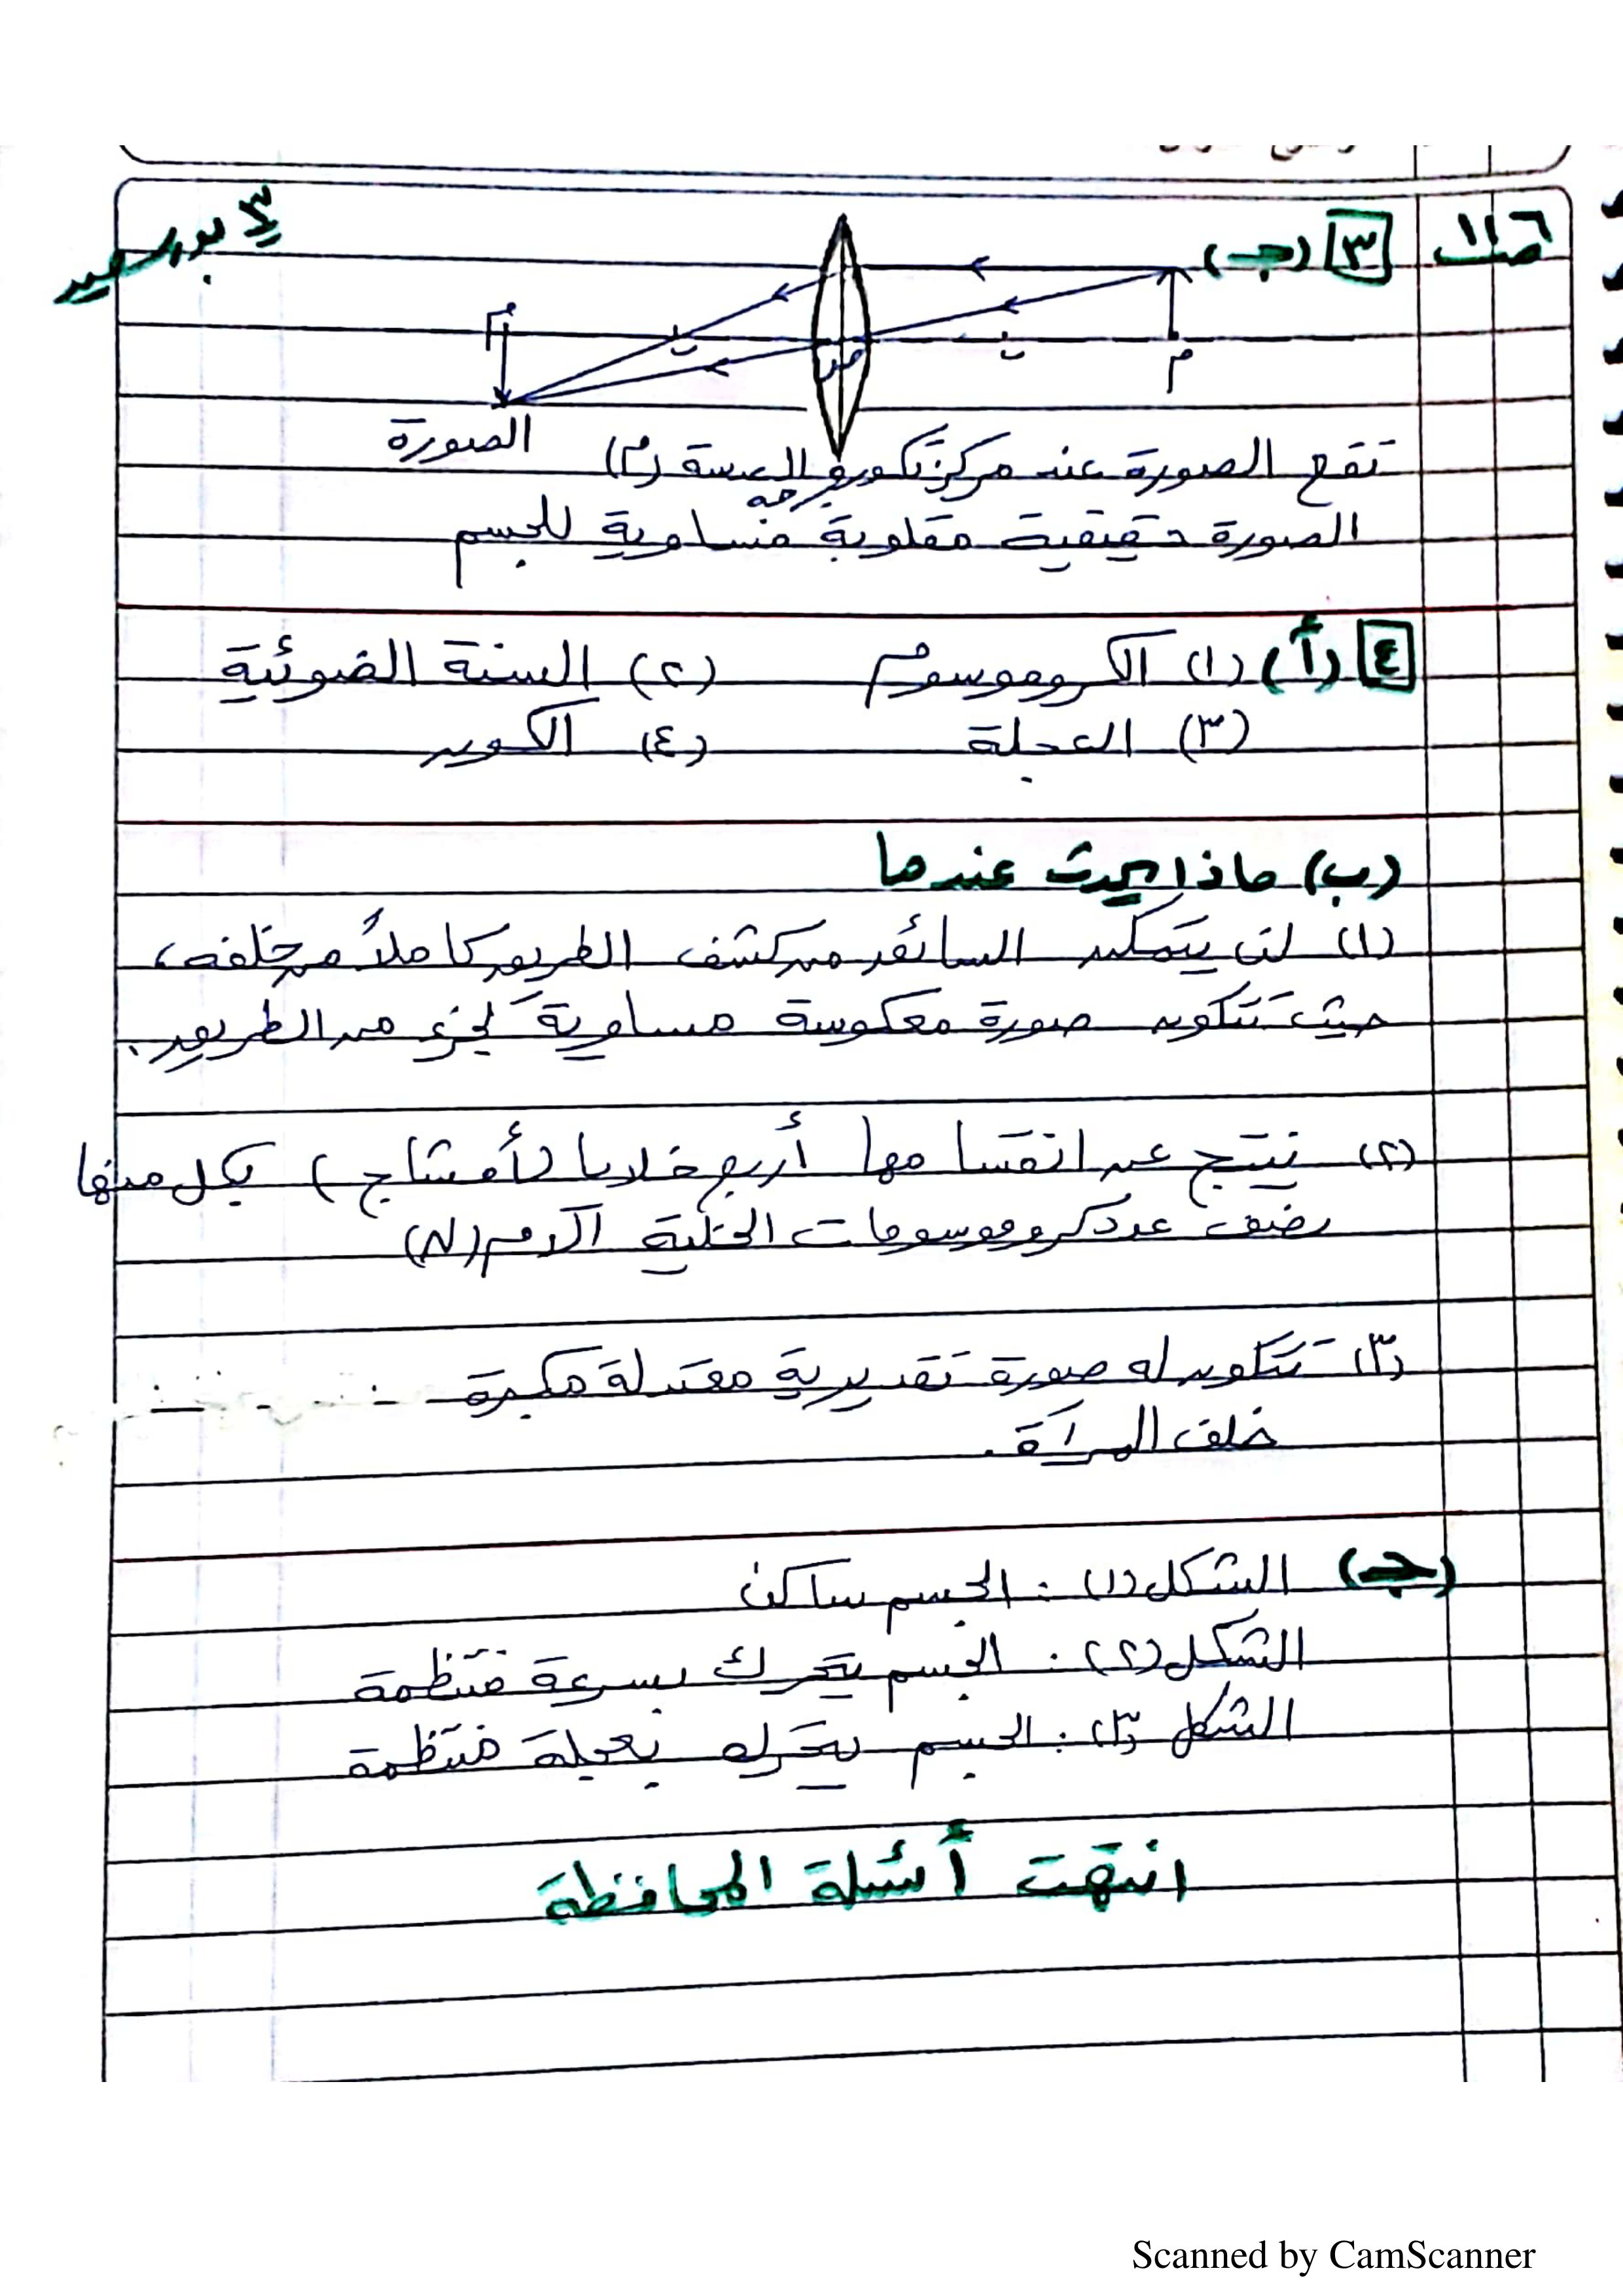 ص١١٦ ٣ (جـ) ٣ بورسعيد
ب ص ب م
الصورة
تقع الصورة عند مركز تكور وجه العدسة (م)
الصورة حقيقية مقلوبة مساوية للجسم
٤ (أ) (١) الكروموسوم (٢) السنة الضوئية
(٣) العجلة (٤) الكوين
(ب) ماذا يحدث عندما
(١) لن يتمكن السائق من كشف الطريق كاملاً من خلفه،
حيث تتكون صورة معكوسة مساوية لجزء من الطريق.
(٢) ينتج عن انقسامها أربع خلايا (أمشاج) بكل منها
نصف عدد كروموسومات الخلية الأم (N)
(٣) تتكون له صورة تقديرية معتدلة مكبرة
خلف المرآة.
(جـ) الشكل (١) : الجسم ساكن
الشكل (٢) : الجسم يتحرك بسرعة منتظمة
الشكل (٣) : الجسم يتحرك بعجلة منتظمة
انتهت أسئلة المحافظة
Scanned by CamScanner